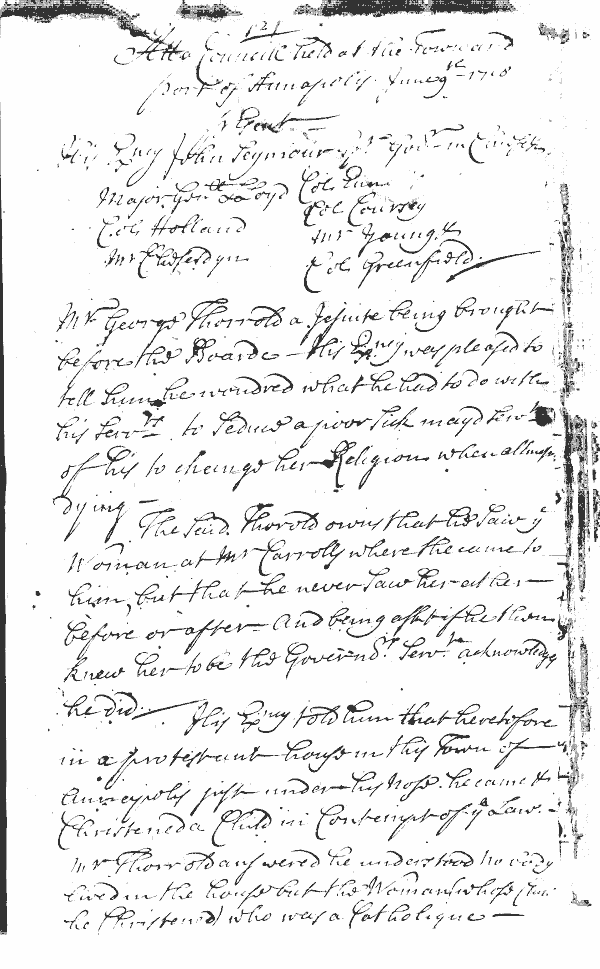 121
Att a Councill held at the Towne and
port of Annapolis June 9th 1708
Present
His Exncy John Seymour Esqr Govr in Cheif &c
Major Genll Lloyd Coll Ennalls
Col Holland Col Coursey
Mr Cheseldyn Mr Young &
Col Greenfield
Mr George Thorrold a Jesuite being brought
before the Board — His Exncy was pleased to
tell him he wondred what he had to do with
his Servts to Seduce a poor Sick mayd Servt
of his to change her Religion when allmost
dying —
The Said Thorold owns that he Saw ye
Woman at Mr Carrolls where she came to
him, but that he never Saw her either
before or after And being askt if he then
knew her to be the Governors Servt acknowledges
he did — His Exncy told him that heretofore
in a protestant house in this Town of
Annapolis just under his Nose he came &
Christened a Child in Contempt of ye Law. —
Mr Thorrold answered he understood no body
lived in the house but the Woman (whose Child
he Christened) who was a Catholique —